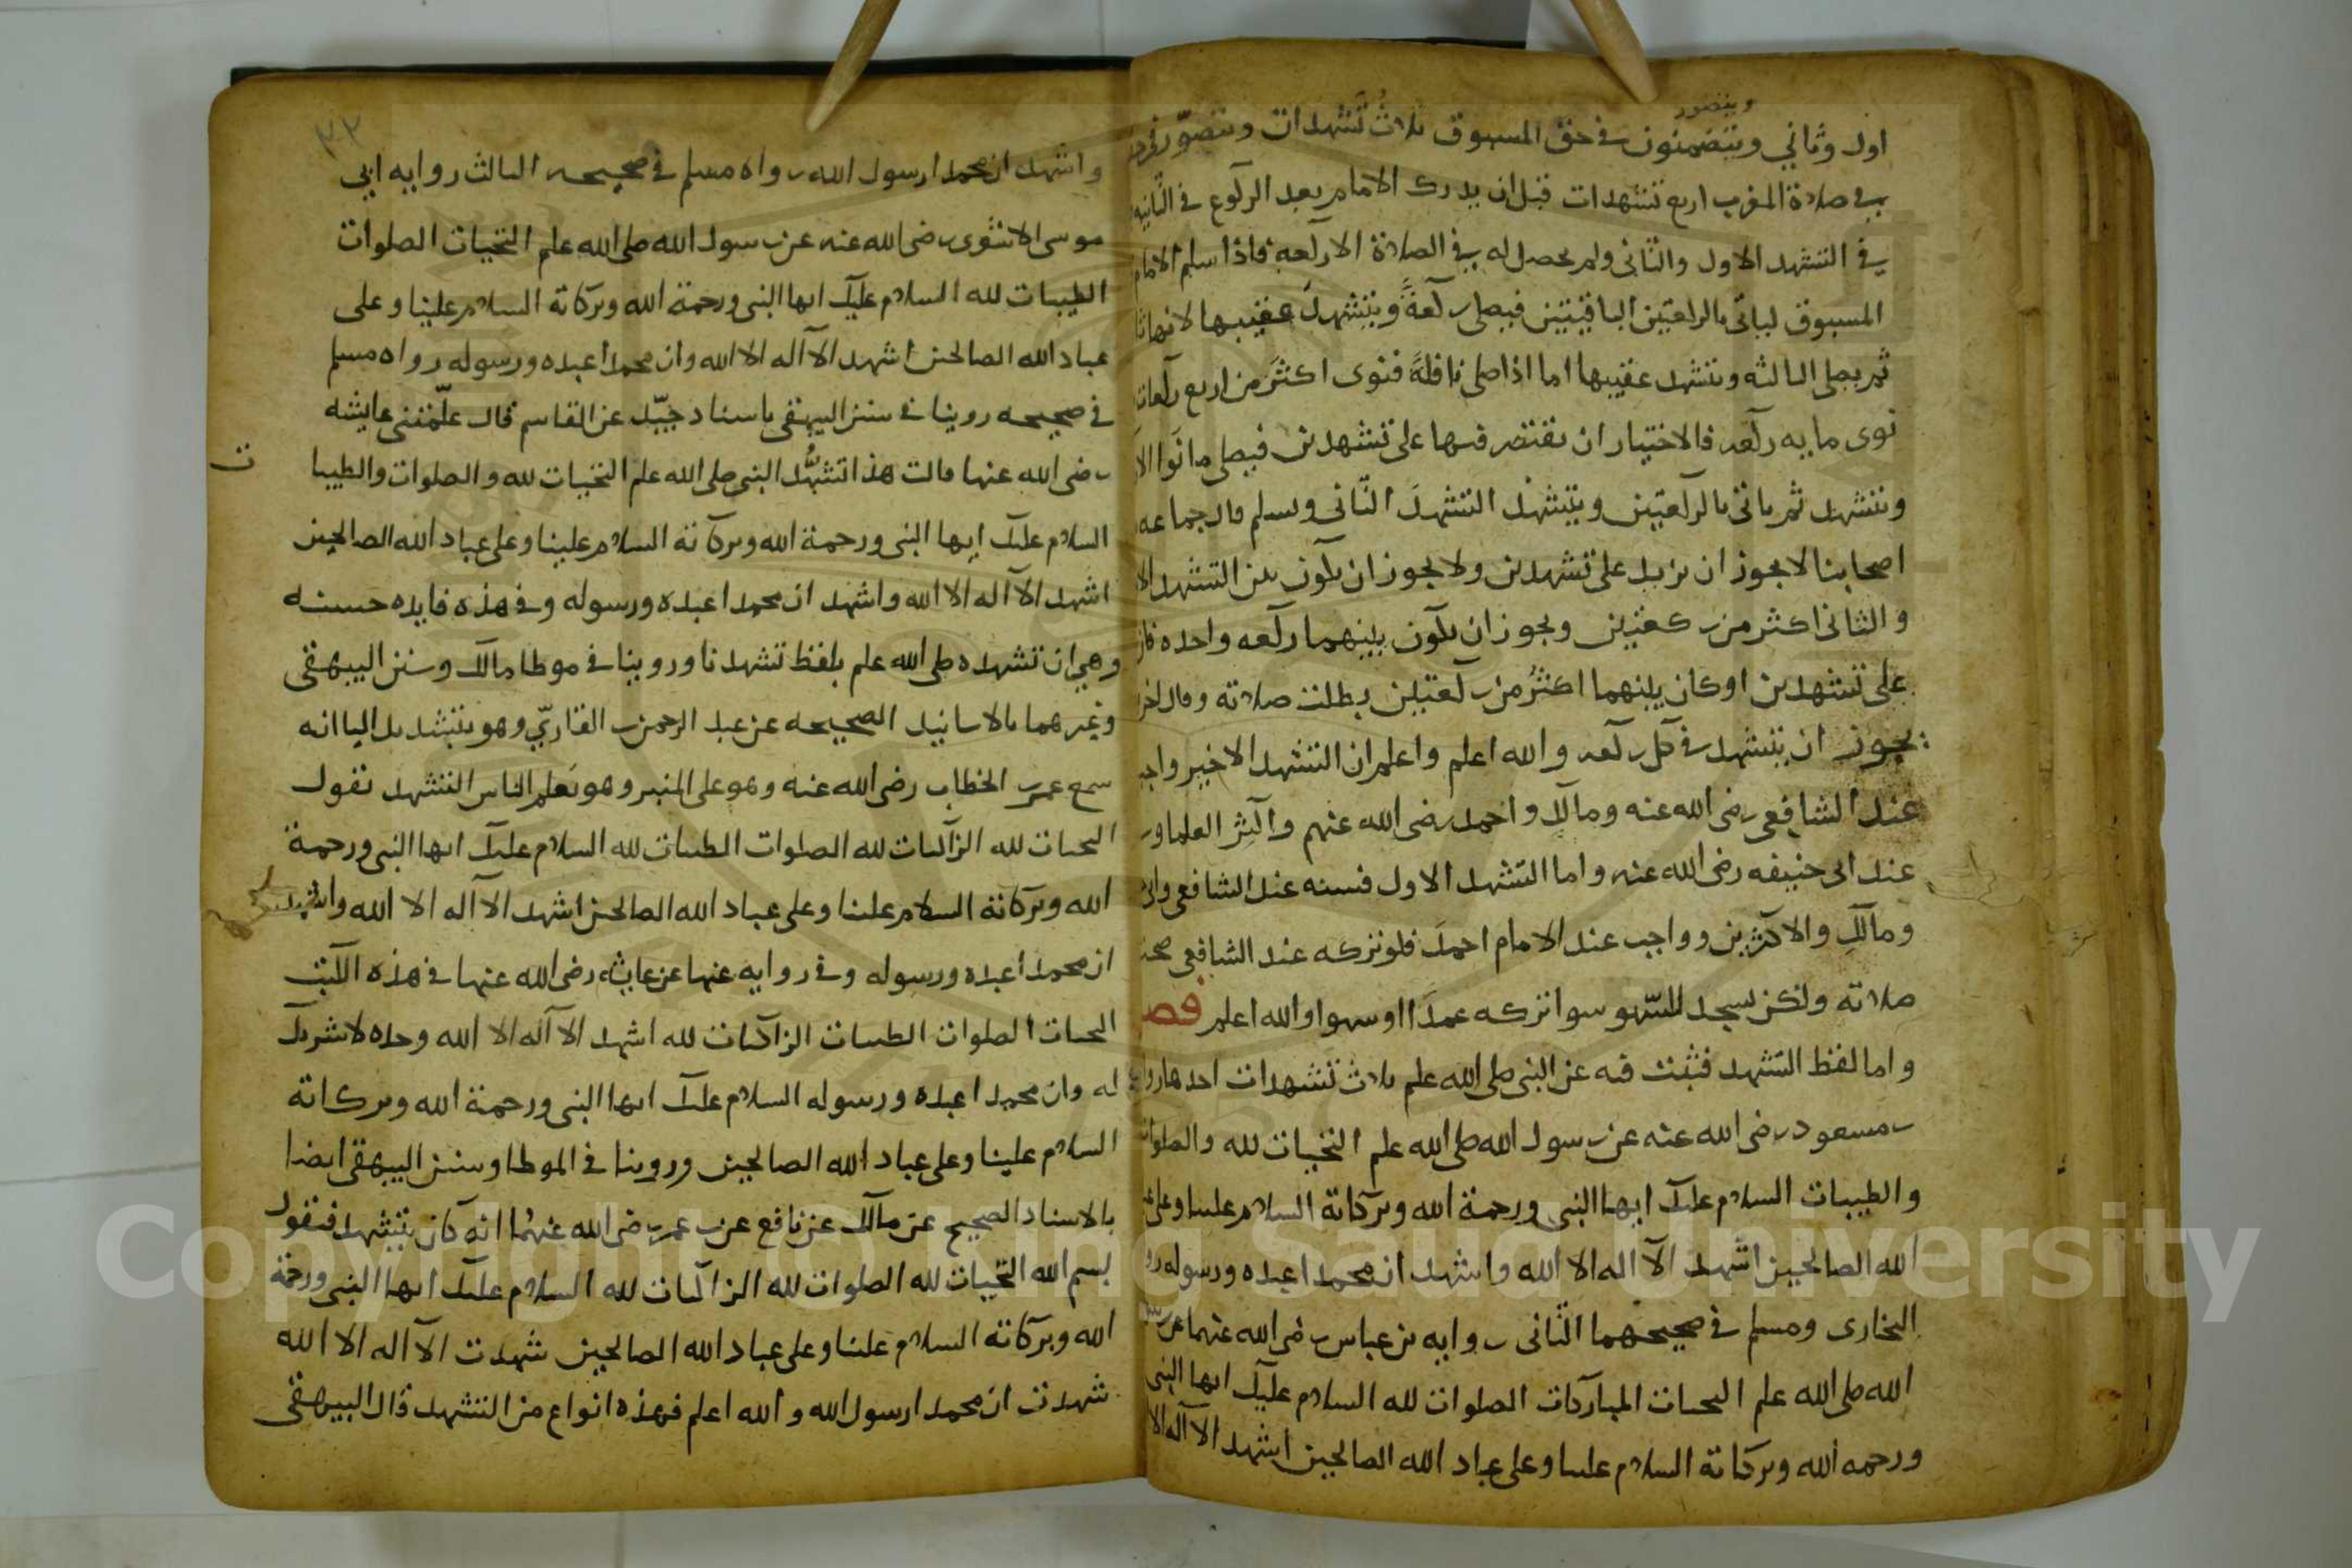 ويتصور
اول وثاني ويتضمنون في حق المسبوق ثلاث تشهدات ويتصوّر في
في صلاة المغرب اربع تشهدات قبل ان يدرك الامام بعد الركوع في الثانيه
في التشهد الاول والثاني ولم يحصل له في الصلاة الا ركعة فاذا سلم الامام
المسبوق لياتي بالركعتين الباقيتين فيصلي ركعةً ويتشهد عقيبها لانها
ثم يصلي الثالثه ويتشهد عقيبها اما اذا صلى نافلةً فنوى اكثر من اربع ركعات
نوى مايه ركعه فالاختيار ان يقتصر فيها على تشهدين فيصلي ما نوا الا
ويتشهد ثم ياتي بالركعتين ويتشهد التشهد الثاني ويسلم قال جماعه
اصحابنا لا يجوز ان يزيد على تشهدين ولا يجوز ان يكون بين التشهد الا
والثاني اكثر من ركعتين ويجوز ان يكون بينهما ركعه واحده فان
على تشهدين او كان بينهما اكثرُ من ركعتين بطلت صلاته وقال اخر
يجوز ان يتشهد في كل ركعه والله اعلم واعلم ان التشهد الاخير واجب
عند الشافعي رضى الله عنه ومالك واحمد رضى الله عنهم واكثر العلما و
عند ابى حنيفه رضى الله عنه واما التشهد الاول فسنه عند الشافعي وابي
ومالكٍ والاكثرين وواجب عند الامام احمدَ فلو تركه عند الشافعي صحت
صلاته ولكن يسجد للسّهو سوا تركه عمدًا او سهوا والله اعلم فصل
واما لفظ التشهد فثبت فيه عن النبى صلى الله علم ثلاث تشهدات احدها روا
بن مسعود رضى الله عنه عن رسول الله صلى الله علم التحيات لله والصلوات
والطيبات السلام عليك ايها النبى ورحمة الله وبركاته السلام علينا وعلى
الله الصالحين اشهد الا اله الا الله واشهد ان محمدا عبده ورسوله
البخارى ومسلم في صحيحهما الثانى روايه بن عباس رضى الله عنهما عن
الله صلى الله علم التحيات المباركات الصلوات لله السلام عليك ايها النبى
ورحمه الله وبركاته السلام علينا وعلى عباد الله الصالحين اشهد الا اله الا
٣٢
واشهد ان محمدا رسول الله رواه مسلم في صحيحه الثالث روايه ابي
موسى الاشعرى رضى الله عنه عن رسول الله صلى الله علم التحيات الصلوات
الطيبات لله السلام عليك ايها النبى ورحمة الله وبركاته السلام علينا وعلى
عباد الله الصالحين اشهد الا اله الا الله وان محمدا عبده ورسوله رواه مسلم
في صحيحه روينا في سنن البيهقى باسناد جيّد عن القاسم قال علّمتنى عايشه
رضى الله عنها قالت هذا تشهُّد النبى صلى الله علم التحيات لله والصلوات والطيبا
ت
السلام عليك ايها النبى ورحمة الله وبركاته السلام علينا وعلى عباد الله الصالحين
اشهد الا اله الا الله واشهد ان محمدا عبده ورسوله وفي هذه فايده حسنه
وهي ان تشهده صلى الله علم بلفظ تشهدنا وروينا في موطا مالك وسنن البيهقى
وغيرهما بالاسانيد الصحيحه عن عبد الرحمن القاريّ وهو بتشديد اليا انه
سمع عمر بن الخطاب رضى الله عنه وهو على المنبر وهو يعلم الناس التشهد يقول
التحيات لله الزاكيات لله الصلوات الطيبات لله السلام عليك ايها النبى ورحمة
الله وبركاته السلام علينا وعلى عباد الله الصالحين اشهد الا اله الا الله واشهد
ان محمدا عبده ورسوله وفي روايه عنها عن عايشه رضى الله عنها في هذه الكتب
التحيات الصلوات الطيبات الزاكيات لله اشهد الا اله الا الله وحده لا شريك
له وان محمدا عبده ورسوله السلام عليك ايها النبى ورحمة الله وبركاته
السلام علينا وعلى عباد الله الصالحين وروينا في الموطا وسنن البيهقى ايضا
بالاسناد الصحيح عن مالك عن نافع عن بن عمر رضى الله عنهُما انه كان يتشهد فيقول
بسم الله التحيات لله الصلوات لله الزاكيات لله السلام عليك ايها النبى ورحمة
الله وبركاته السلام علينا وعلى عباد الله الصالحين شهدت الا اله الا الله
شهدت ان محمدا رسول الله والله اعلم فهذه انواع من التشهد قال البيهقى
Copyright © King Saud University